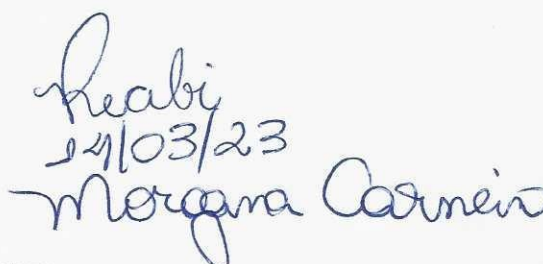 Reabi
14/03/23
Morgana Carneiro